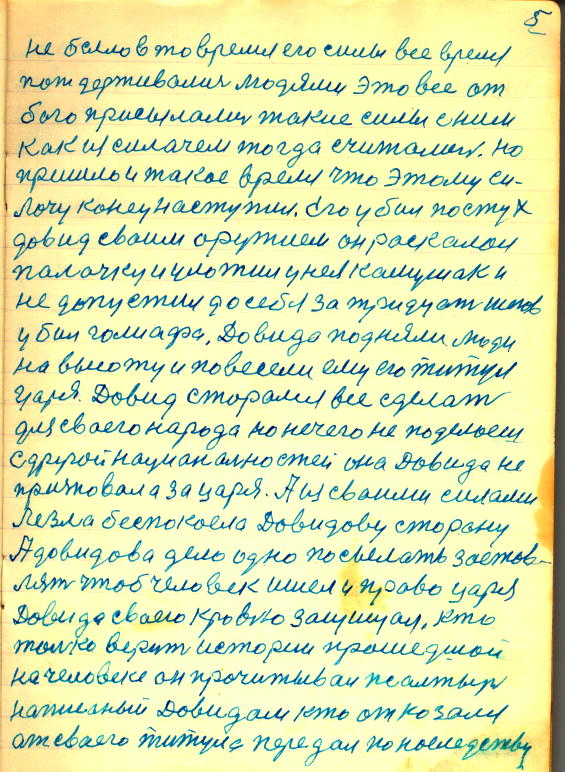 5
не было в то время его силы все время
потдерживалис людями это все от
бога присылалис такие силы с ним
как из силачем тогда считалис. но
пришло и такое время что этому си-
лочу конец наступил. Его убил постух
довид своим оружием он роскалол
палочку и уложил у нея камушак и
не допустил до себя за тридцат шагов
убил голиафа. Довида подняли люди
на высоту и повесели ему его титул
царя. Довид сторался все сделат
для своего народа но нечего не поделоеш
с другой националностей она Довида не
признвала за царя. А из своими силами
лезла беспокоела Довидову сторону
А довидова дело одно посылать зоетов-
лят чтоб человек имел и право царя
Довида своего кровю защищал. кто
толко верит истории прошедшой
на человеке он прочитывал псалтыр
написаный Довидам кто откозалс
от своего титула передал по носледству